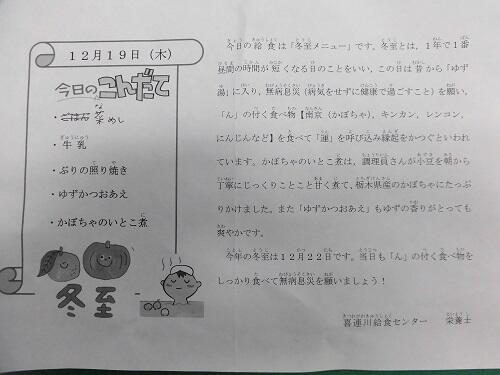 12月19日（木）
今日のこんだて
・ごはん 菜めし
・牛乳
・ぶりの照り焼き
・ゆずかつおあえ
・かぼちゃのいとこ煮
冬至
今日の給食は「冬至メニュー」です。冬至とは、1年で1番
昼間の時間が短くなる日のことをいい、この日は昔から「ゆず
湯」に入り、無病息災（病気をせずに健康で過ごすこと）を願い、
「ん」の付く食べ物【南京（かぼちゃ）、キンカン、レンコン、
にんじんなど】を食べて「運」を呼び込み縁起をかつぐといわれ
ています。かぼちゃのいとこ煮は、調理員さんが小豆を朝から
丁寧にじっくりことこと甘く煮て、栃木県産のかぼちゃにたっぷ
りかけました。また「ゆずかつおあえ」もゆずの香りがとっても
爽やかです。
今年の冬至は12月22日です。当日も「ん」の付く食べ物を
しっかり食べて無病息災を願いましょう！
喜連川給食センター　栄養士